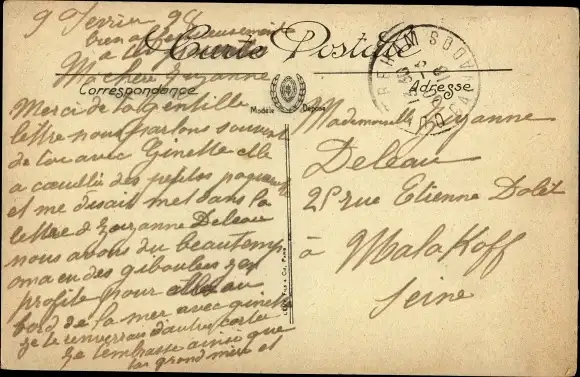 9 Fevrier 98
bien affectueusement
a
Carte Postale
Ma chere Suzanne
Correspondance
Adresse
Modèle Déposé
Merci de ta gentille
lettre nous parlons souvent
de toi avec Ginette elle
a cueilli des petites
et me disait met dans la
lettre a Zouzanne Deleau
nous avons du beau temps
on a eu des giboulees
profite pour aller au
bord de la mer avec ginette
je te renverrai d'autres carte
je t'embrasse ainsi que
ta grand mère et
Mademoiselle Suzanne
Deleau
25 rue Etienne Dolet
à Malakoff
Seine